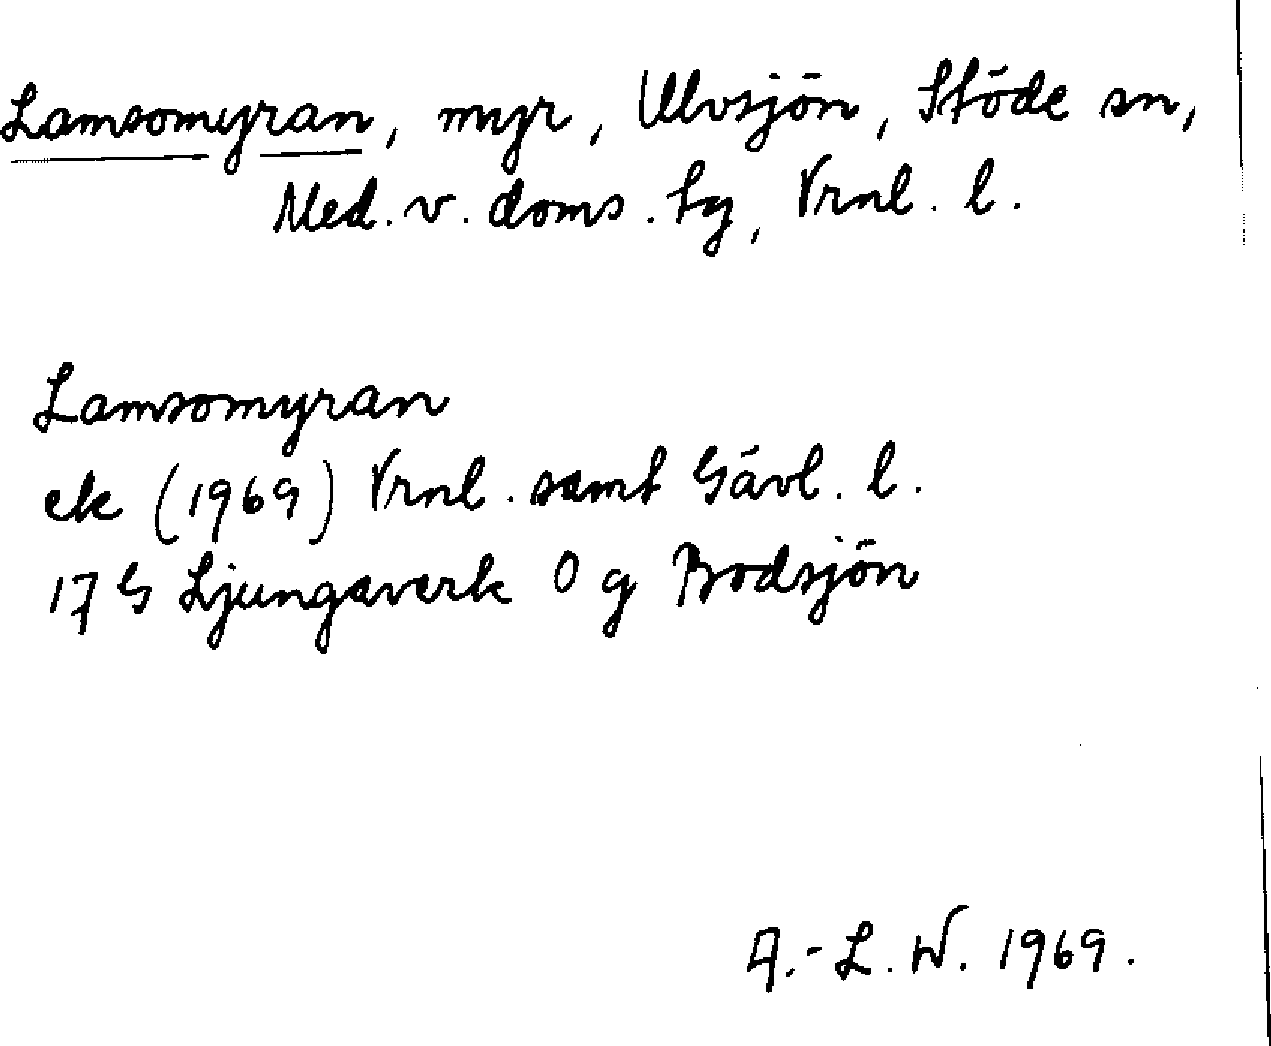 Lamsomyran, myr, Ulvsjön, Stöde sn,
Med. v. doms. tg, Vrnl. l.
Lamsomyran
ek (1969) Vrnl. samt Gävl. l.
17 G Ljungaverk 0 g Bodsjön
A.-L. W. 1969.